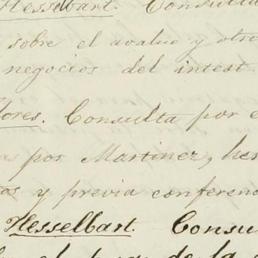 Hesselbart. Consulta
sobre el avaluo y otro
negocios del intest
lores. Consulta por e
as por Martinez, her
os y previa conferenc
Hesselbart. Consu
el pago de la